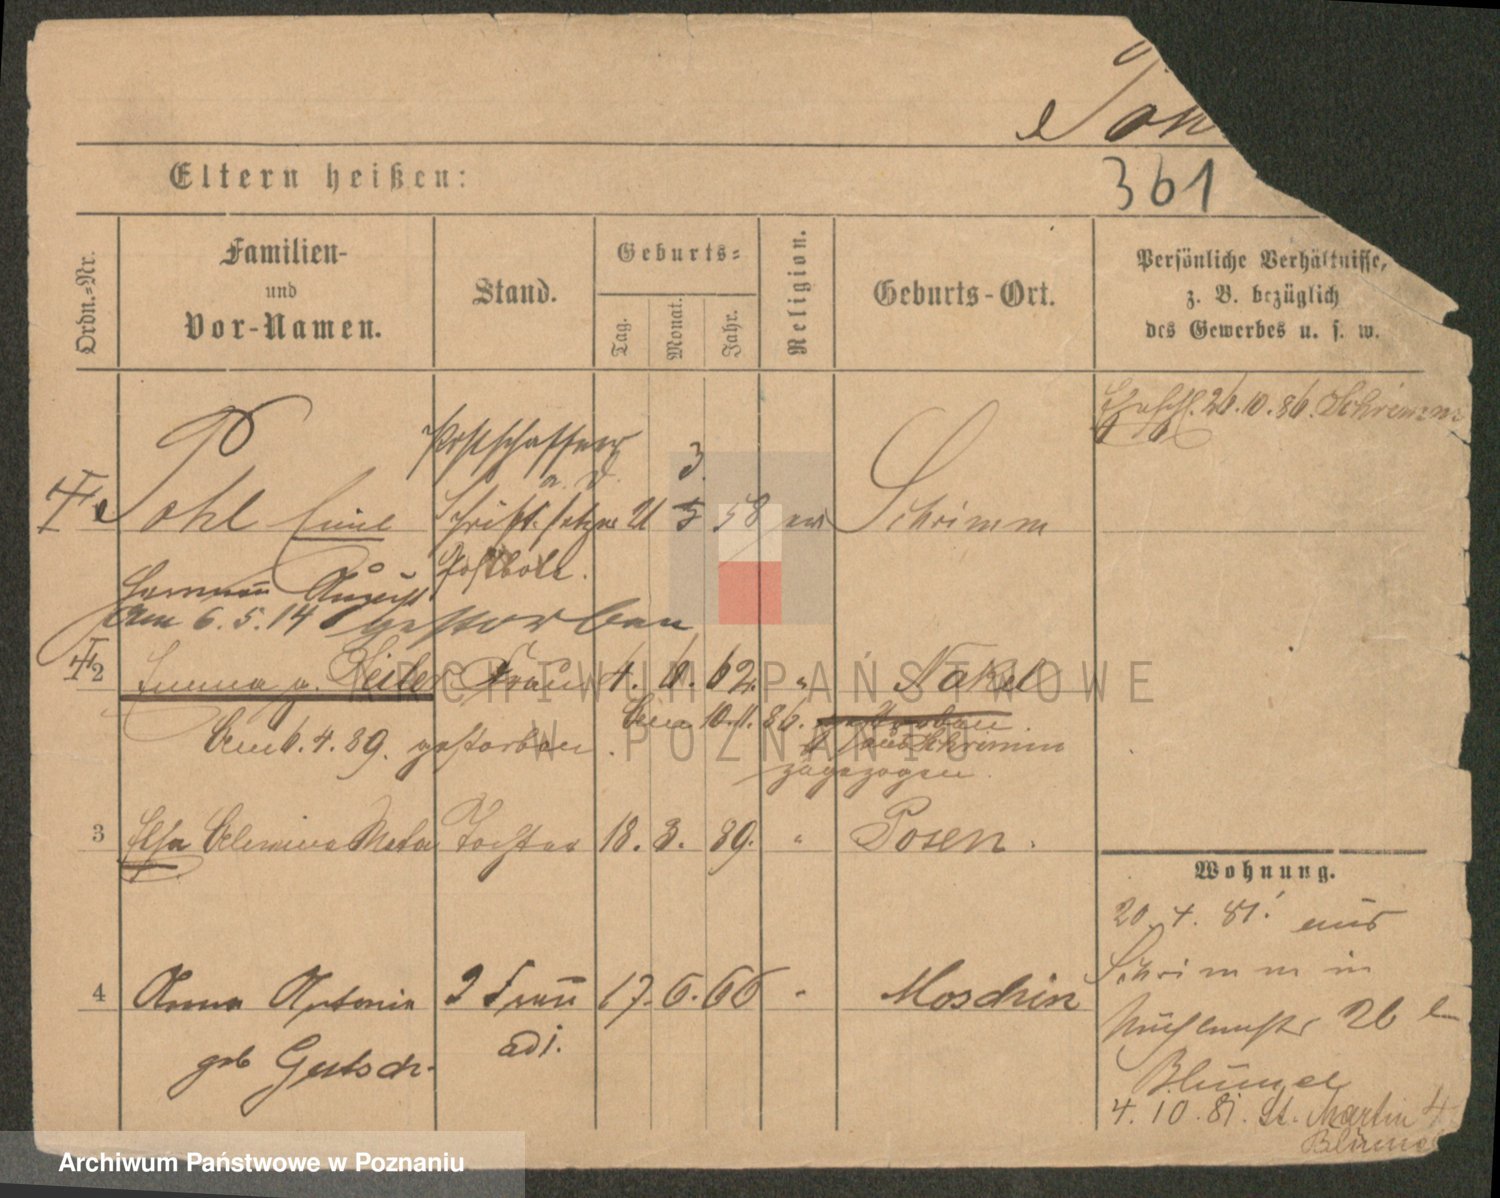 Pohl
361
Eltern heißen:
Ordn.-Nr.
Familien-
und
Vor-Namen.
Stand.
Geburts-
Tag.
Monat.
Jahr.
Religion.
Geburts-Ort.
Persönliche Verhältnisse,
z. B. bezüglich
des Gewerbes u. s. w.
26.10.86. Schrimm
Postschaffner
a. D.
3.
Pohl Emil Schriftsetzer 21 5 58 ev Schrimm
Postbote.
Hermann August
Am 6.5.14 gestorben
2 Emma g. Frau 4. 8. 62. " Nakel
Am 10.11.86. gestorben
Am 6.4.89. gestorben. aus Schrimm
zugezogen.
3 Elsa Meta Tochter 18. 3. 89. " Posen.
Wohnung.
20.4.81. aus
Schrimm in
4 Anna Antonie 2 Frau 17. 6. 66 " Moschin
26
geb Gutsch.
Blümel
4.10.81. St. Martin 4
Blümel
ARCHIWUM PAŃSTWOWE
W POZNANIU
Archiwum Państwowe w Poznaniu